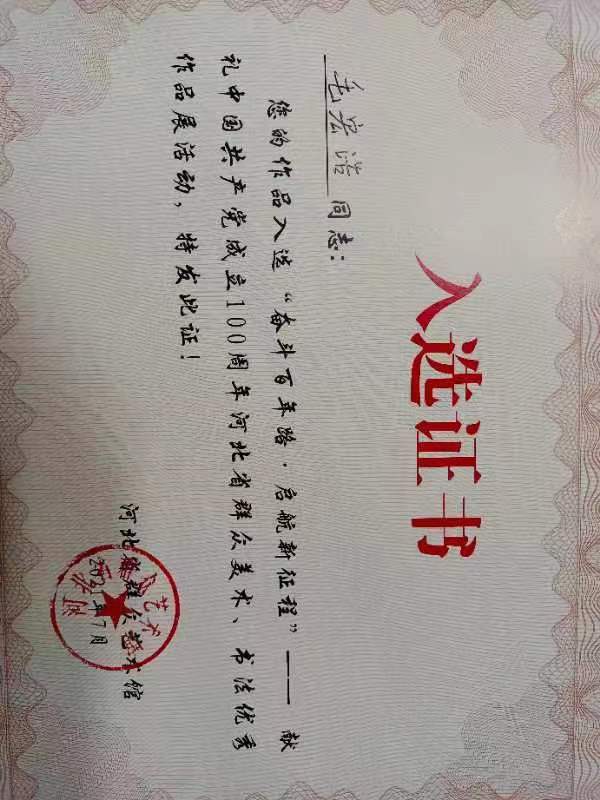 入选证书
毛宏浩同志：
您的作品入选“奋斗百年路·启航新征程”——献
礼中国共产党成立100周年河北省群众美术、书法优秀
作品展活动，特发此证！
河北省群众艺术馆
2021年7月